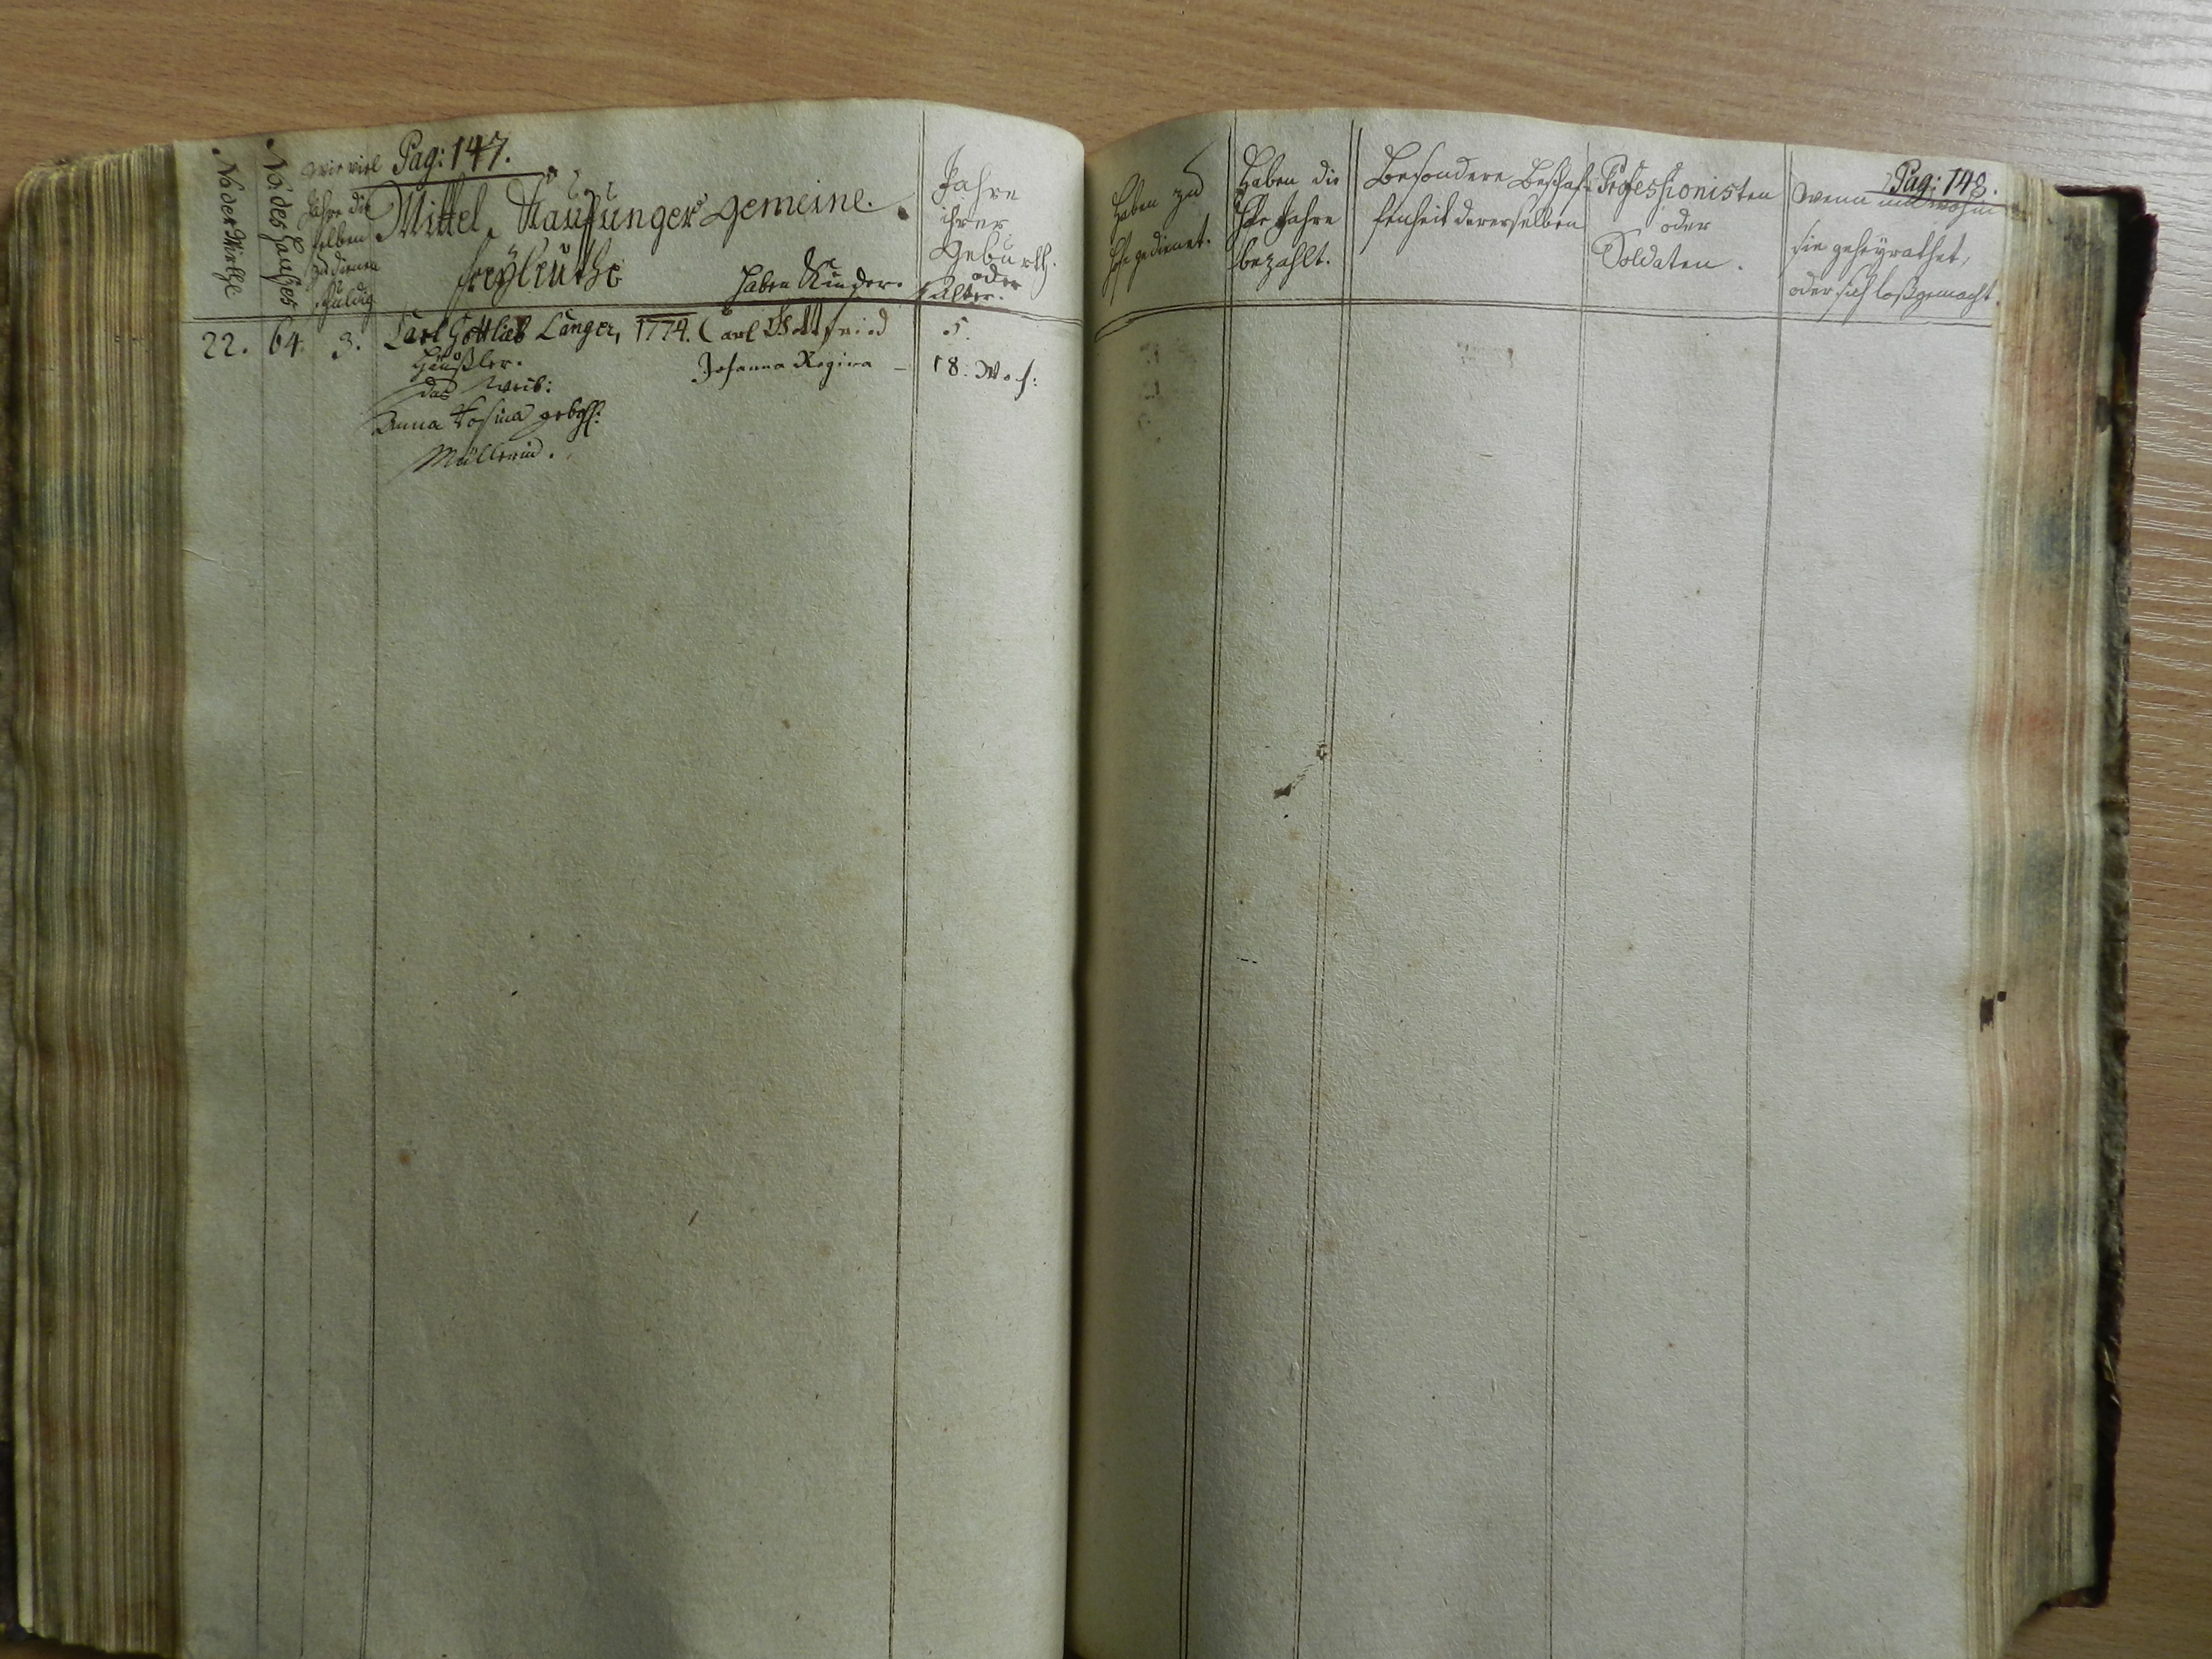 Pag: 147.
No der Wirthe
No: des Hauses
Wie viel
Jahre die
selben
zu dienen
schuldig
Mittel Kauffunger Gemeine.
Freyleuthe
Haben Kinder.
Jahre
ihrer
Geburth.
oder
Alter.
22. 64. 3. Carl Gottlieb Langer, 1774. Carl Gottfried 5.
Häußler. Johanna Regina – 18. Woch:
das Weib:
Anna Rosina gebohr:
Müllerin.
Pag: 148.
Haben zu
Hofe gedienet.
Haben die
Jahre
bezahlt.
Besondere Beschaf-
fenheit dererselben
Professionisten
oder
Soldaten.
Wenn und wohin
sie geheyrathet,
oder sich loßgemacht.